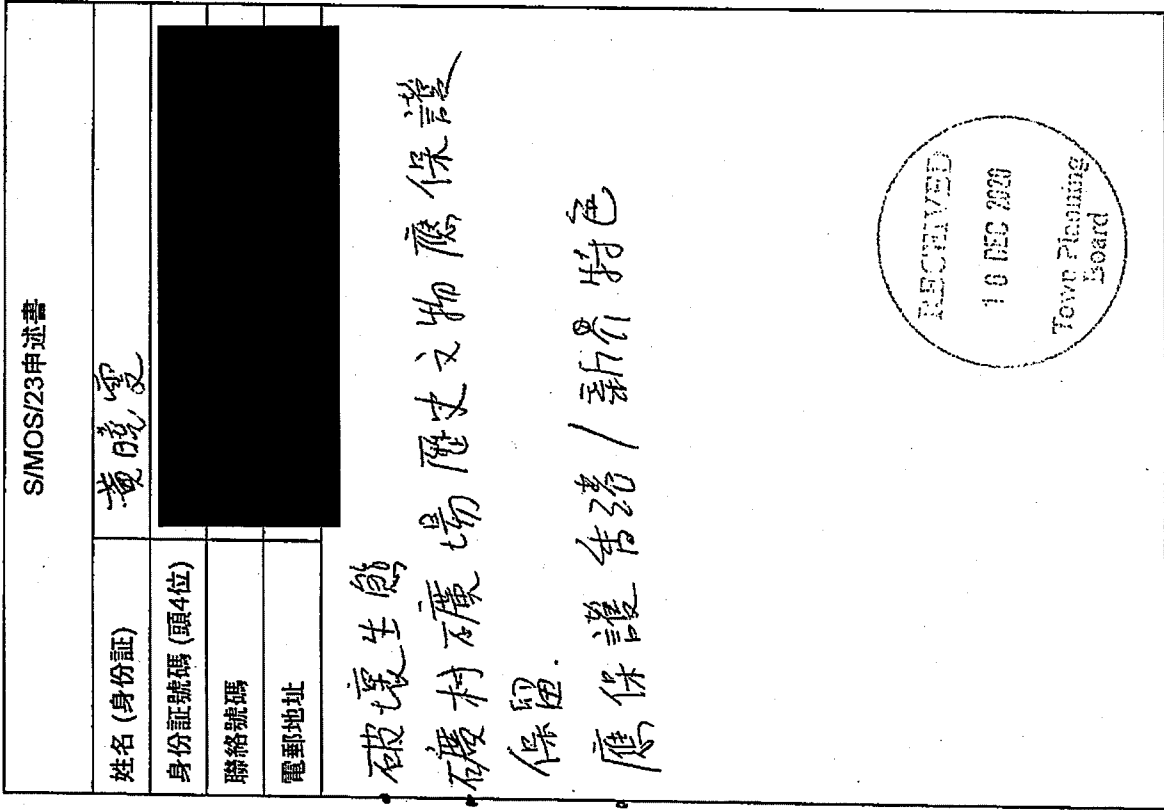 S/MOS/23申述書
姓名 (身份証) 黄曉雯
身份証號碼 (頭4位)
聯絡號碼
電郵地址
破壞生態
礦村礦場歷史文物應保護
保留.
應保護香港/新界特色
RECEIVED
18 DEC 2020
Town Planning
Board